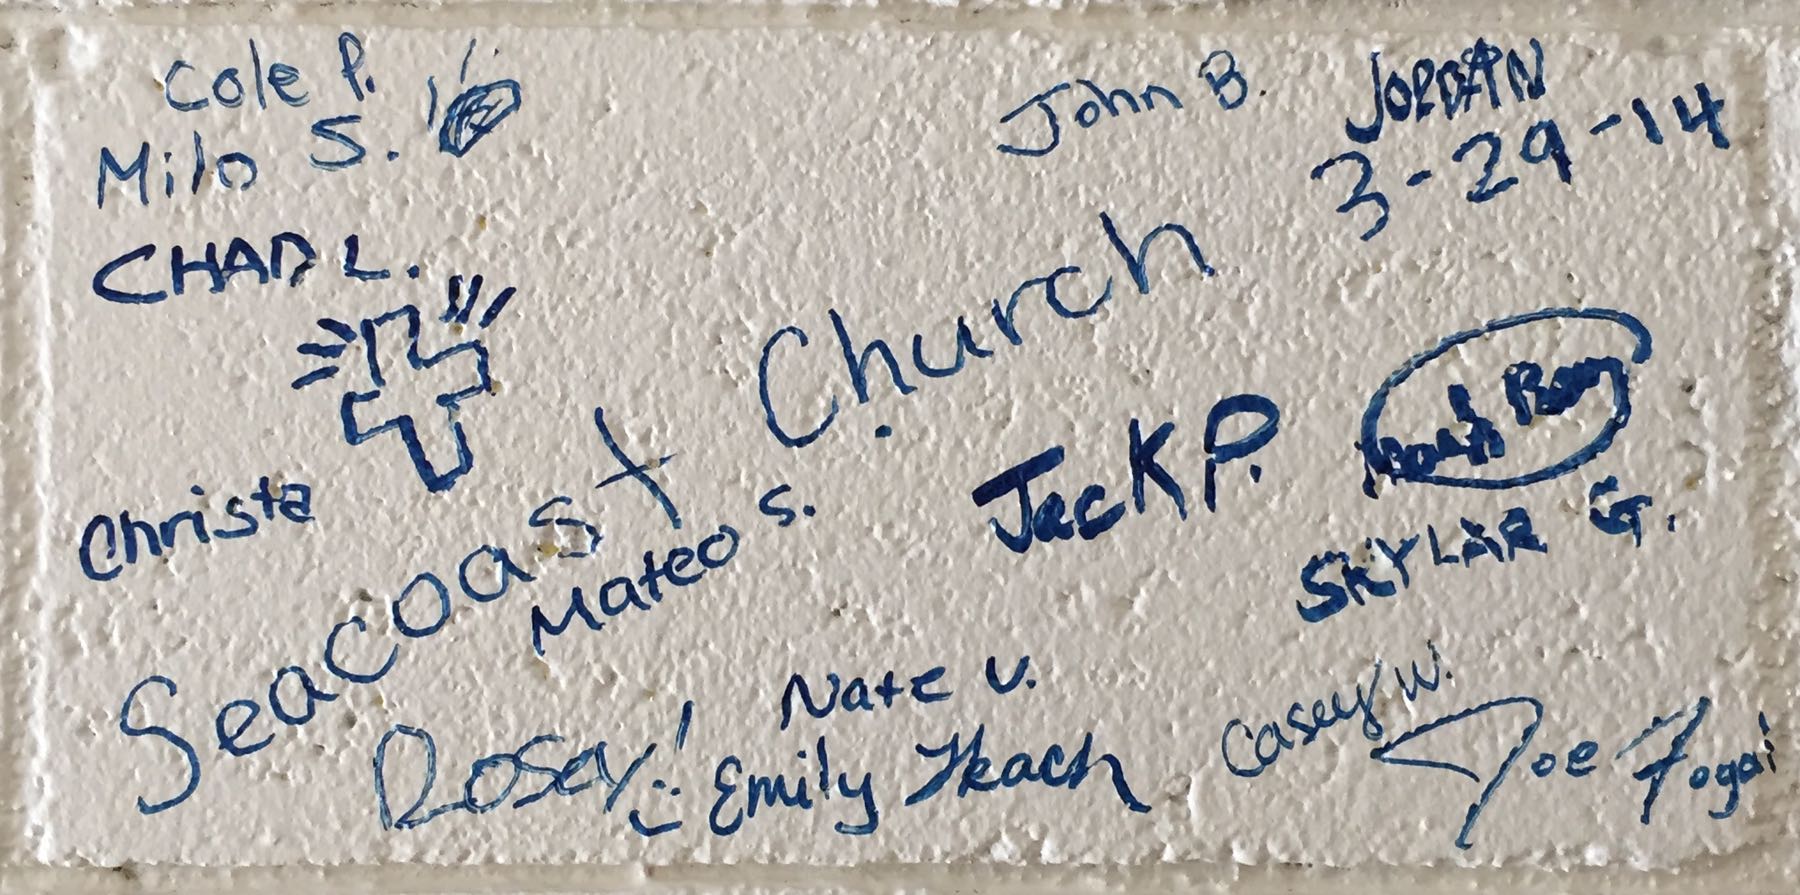 Cole P.
Milo S.
John B.
JORDAN
3-29-14
CHAD L.
Seacoast Church
Christa
Mateo S.
Jack P.
SKYLAR G.
Nate V.
Casey W.
Rosey!
Emily
Joe Fogai